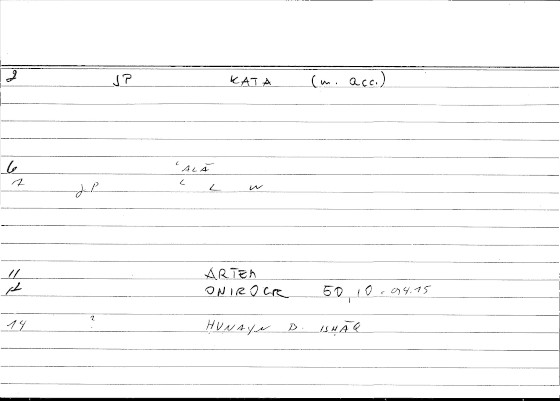 2 JP KATA (m. acc.)
6 ʿALĀ
7 JP L W
11 ARTEM
12 ONIROCR 50,10-
14 ? HUNAYN B. ISHĀQ